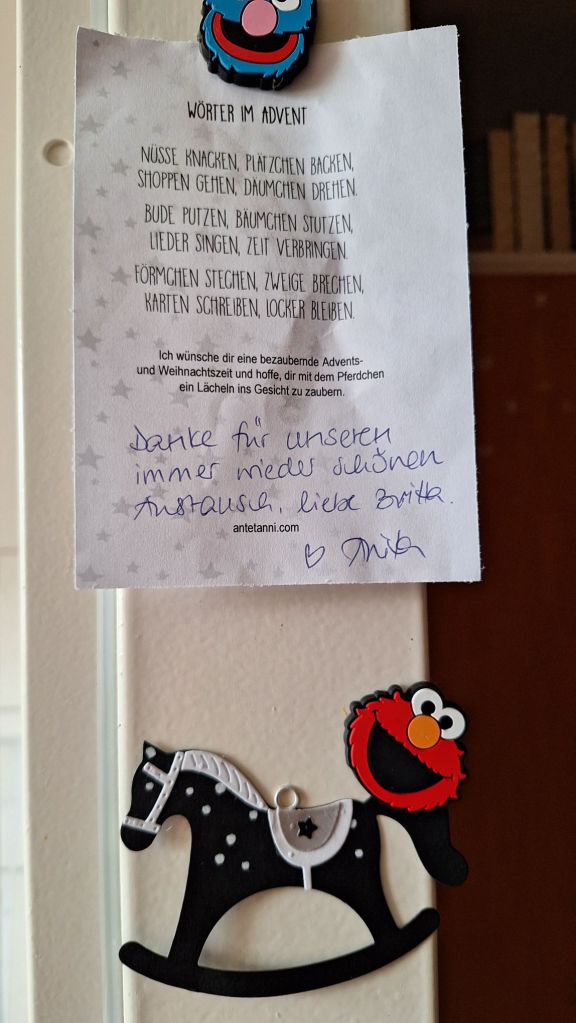 WÖRTER IM ADVENT
NÜSSE KNACKEN, PLÄTZCHEN BACKEN,
SHOPPEN GEHEN, DÄUMCHEN DREHEN.
BUDE PUTZEN, BÄUMCHEN STUTZEN,
LIEDER SINGEN, ZEIT VERBRINGEN.
FÖRMCHEN STECHEN, ZWEIGE BRECHEN,
KARTEN SCHREIBEN, LOCKER BLEIBEN.
Ich wünsche dir eine bezaubernde Advents-
und Weihnachtszeit und hoffe, dir mit dem Pferdchen
ein Lächeln ins Gesicht zu zaubern.
Danke für unseren
immer wieder schönen
Austausch, liebe Britta.
antetanni.com
♡ Anita